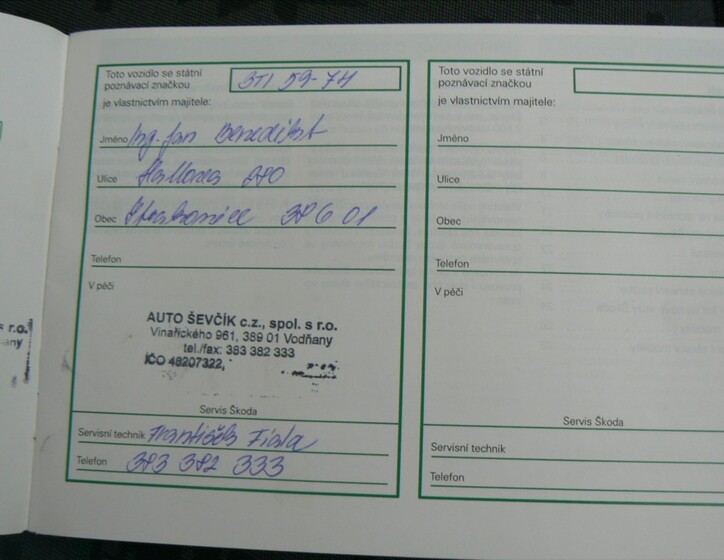 Toto vozidlo se státní
poznávací značkou STI 59-74
je vlastnictvím majitele:
Jméno Ing. Jan Benedikt
Ulice
Obec Strakonice 386 01
Telefon
V péči
AUTO ŠEVČÍK c.z., spol. s r.o.
Vinařického 961, 389 01 Vodňany
tel./fax: 383 382 333
IČO 48207322,
Servis Škoda
Servisní technik František Fiala
Telefon 383 382 333
Toto vozidlo se státní
poznávací značkou
je vlastnictvím majitele:
Jméno
Ulice
Obec
Telefon
V péči
Servis Škoda
Servisní technik
Telefon
s r.o.